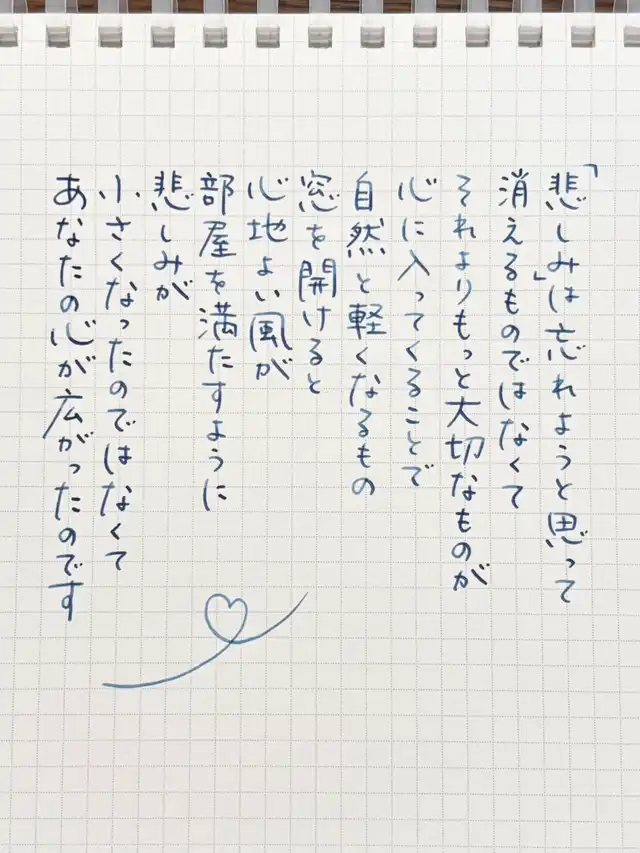 「悲しみ」は忘れようと思って
消えるものではなくて
それよりもっと大切なものが
心に入ってくることで
自然と軽くなるもの
窓を開けると
心地よい風が
部屋を満たすように
悲しみが
小さくなったのではなくて
あなたの心が広がったのです